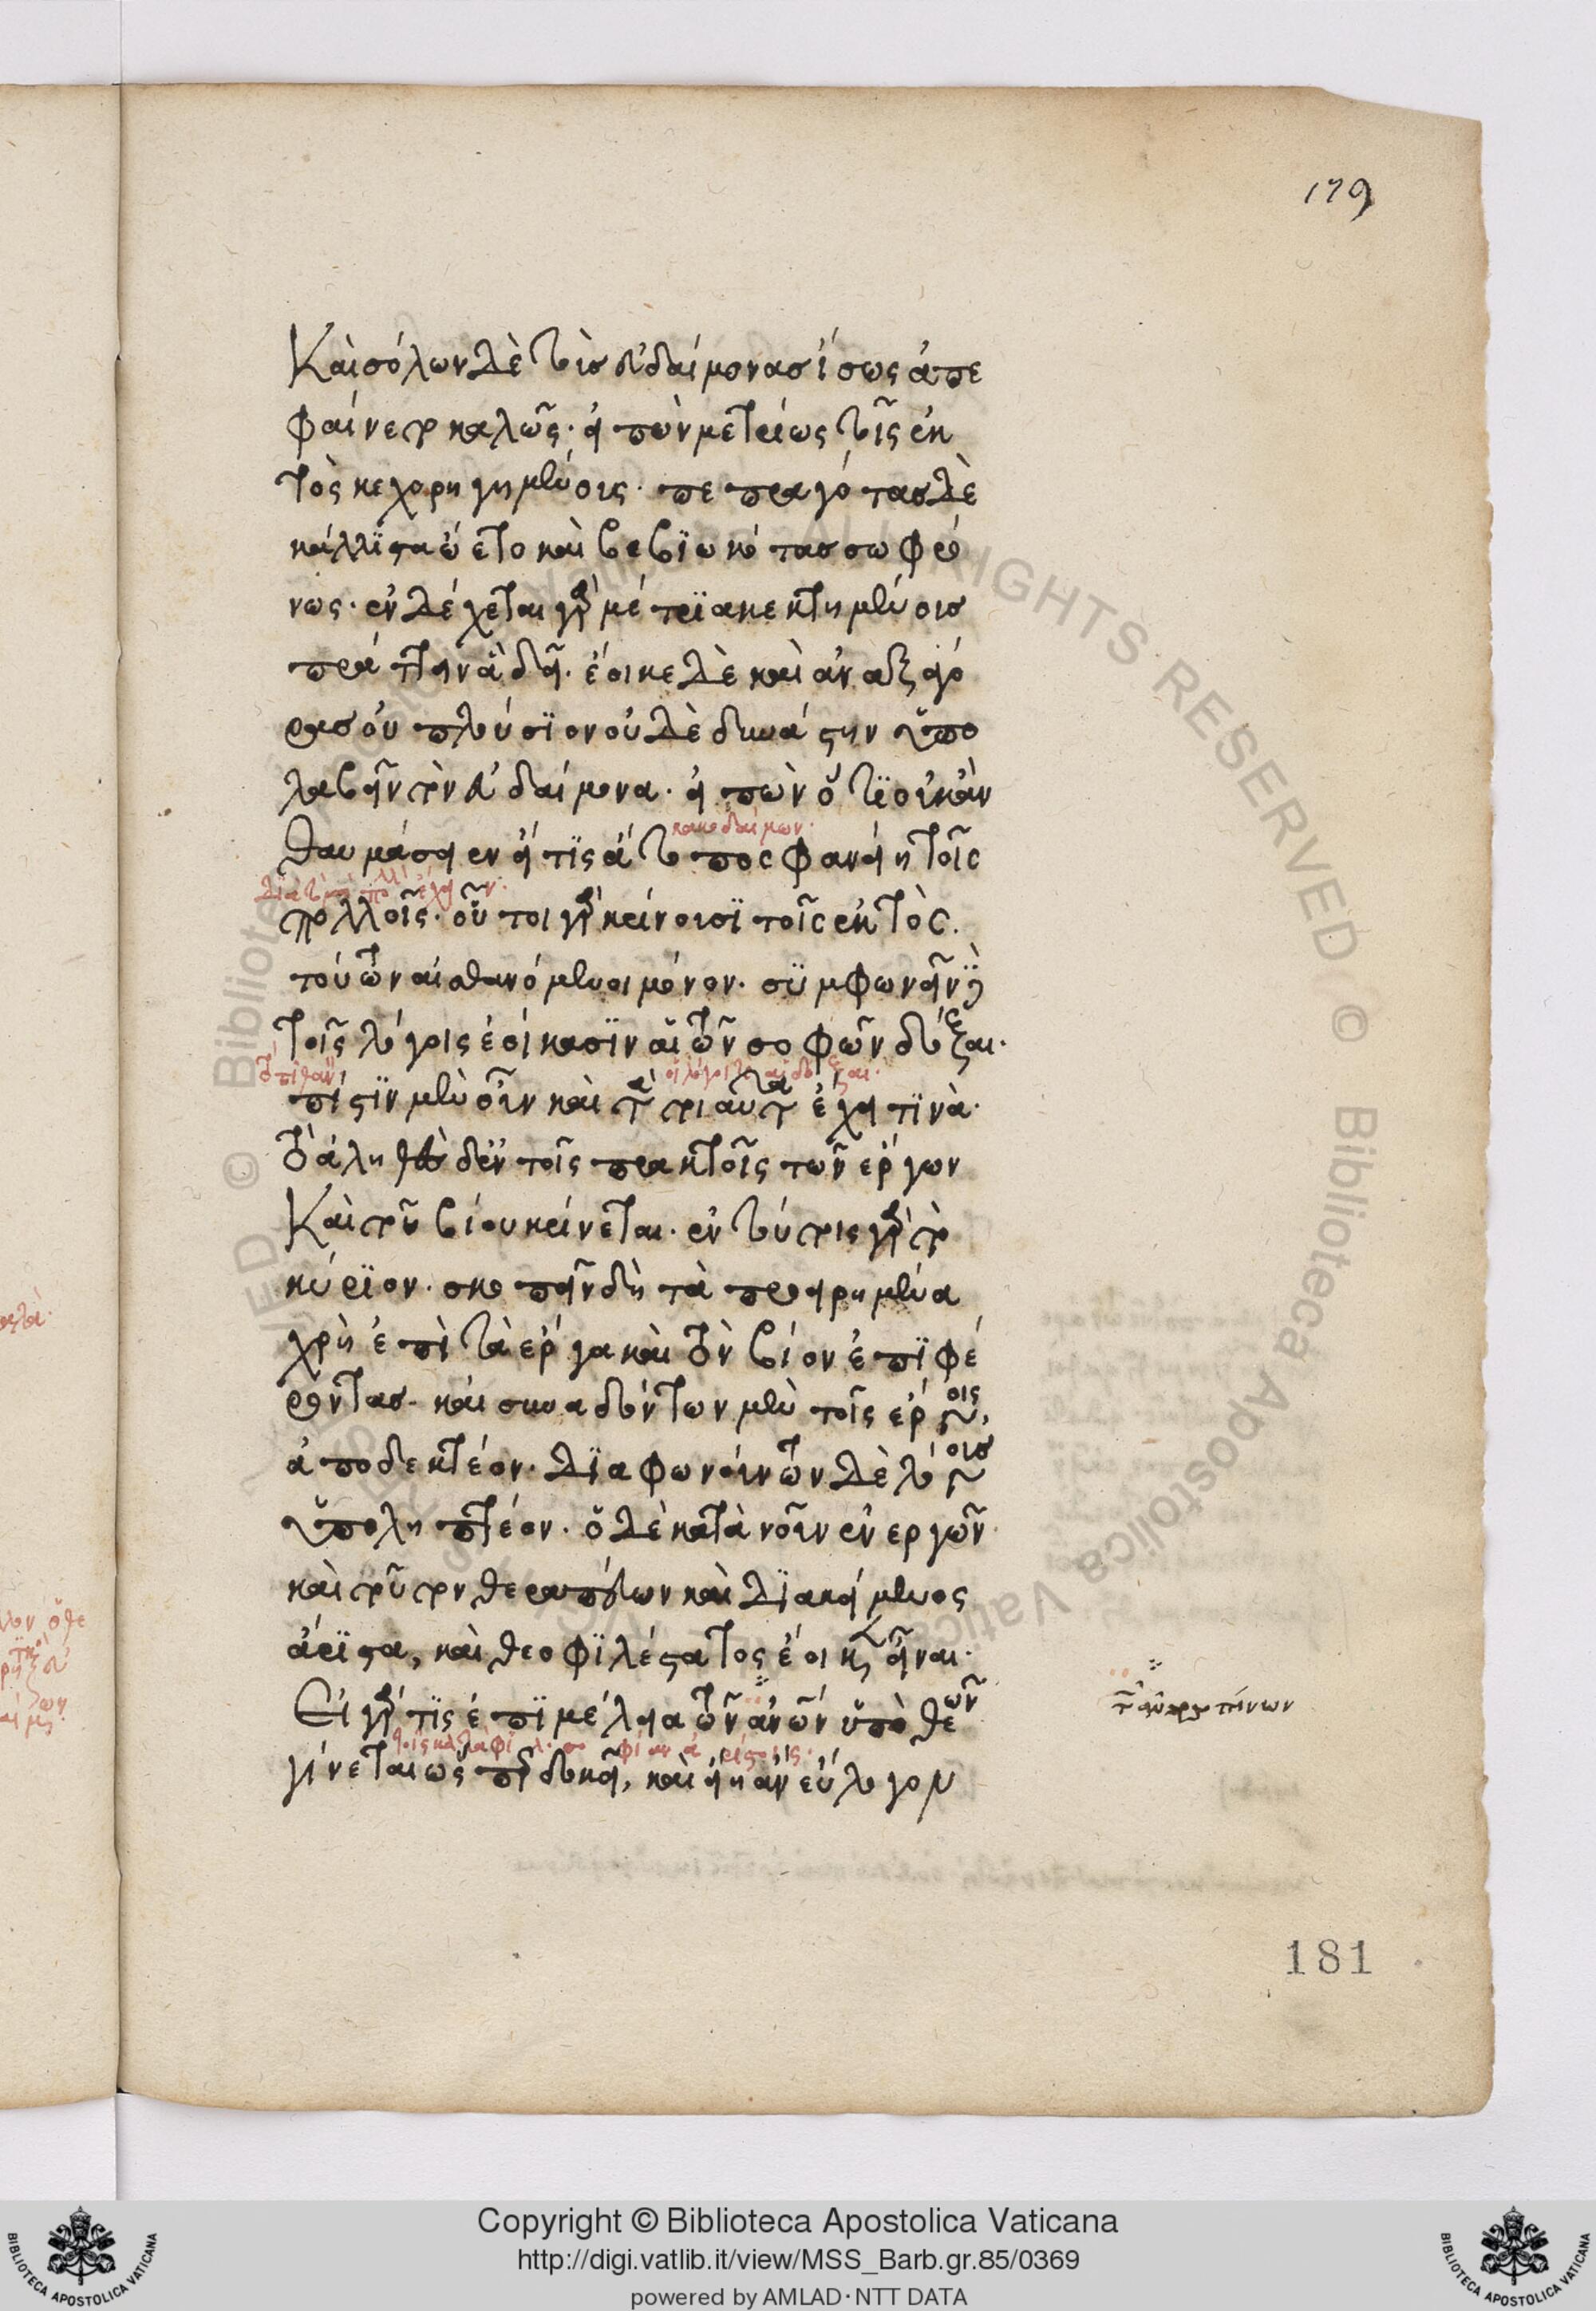 179
Καὶ σόλων δὲ τοὺς εὐδαίμονας ἴσως ἀπε
φαίνετο καλῶς· εἰπὼν μετρίως τοῖς ἐκ
τὸς κεχορηγημένοις· πεπραγότας δὲ
κάλλιστα ᾤετο καὶ βεβιωκότας σωφρό
νως· ἐνδέχεται γὰρ μέτρια κεκτημένοις
πράττειν ἃ δεῖ· ἔοικε δὲ καὶ ἀναξαγό
ρας οὐ πλούσιον οὐδὲ δυνάστην ὑπο
λαβεῖν τὸν εὐδαίμονα· εἰπὼν ὅτι οὐκ ἂν
κακοδαίμων·
θαυμάσειεν εἴ τις ἄτοπος φανείη τοῖς
πολλοῖς· οὗτοι γὰρ κρίνουσι τοῖς ἐκτὸς.
τούτων αἰσθανόμενοι μόνον· συμφωνεῖν δὴ
τοῖς λόγοις ἐοίκασιν αἱ τῶν σοφῶν δόξαι·
πίστιν μὲν οὖν καὶ τὰ τοιαῦτα ἔχει τινὰ·
τὸ ἀληθὲς δ' ἐν τοῖς πρακτοῖς τῶν ἔργων
Καὶ τοῦ βίου κρίνεται· ἐν τούτοις γὰρ τὸ
κύριον· σκοπεῖν δὴ τὰ προειρημένα
χρὴ ἐπὶ τὰ ἔργα καὶ τὸν βίον ἐπιφέ
ροντας· καὶ συναδόντων μὲν τοῖς ἔργοις,
ἀποδεκτέον· διαφωνούντων δὲ λόγοις
ὑποληπτέον· ὁ δὲ κατὰ νοῦν ἐνεργῶν·
καὶ τοῦτον θεραπεύων καὶ διακείμενος
ἄριστα, καὶ θεοφιλέστατος ἔοικεν εἶναι·
Εἰ γάρ τις ἐπιμέλεια τῶν ἀνων ὑπὸ θεῶν
γίνεται ὥσπερ δοκεῖ, καὶ εἴη ἂν εὔλογον
τῶν ἀνθρωπίνων
181
© Biblioteca Apostolica Vaticana ALL RIGHTS RESERVED
Copyright © Biblioteca Apostolica Vaticana
http://digi.vatlib.it/view/MSS_Barb.gr.85/0369
powered by AMLAD · NTT DATA
BIBLIOTECA APOSTOLICA VATICANA
BIBLIOTECA APOSTOLICA VATICANA